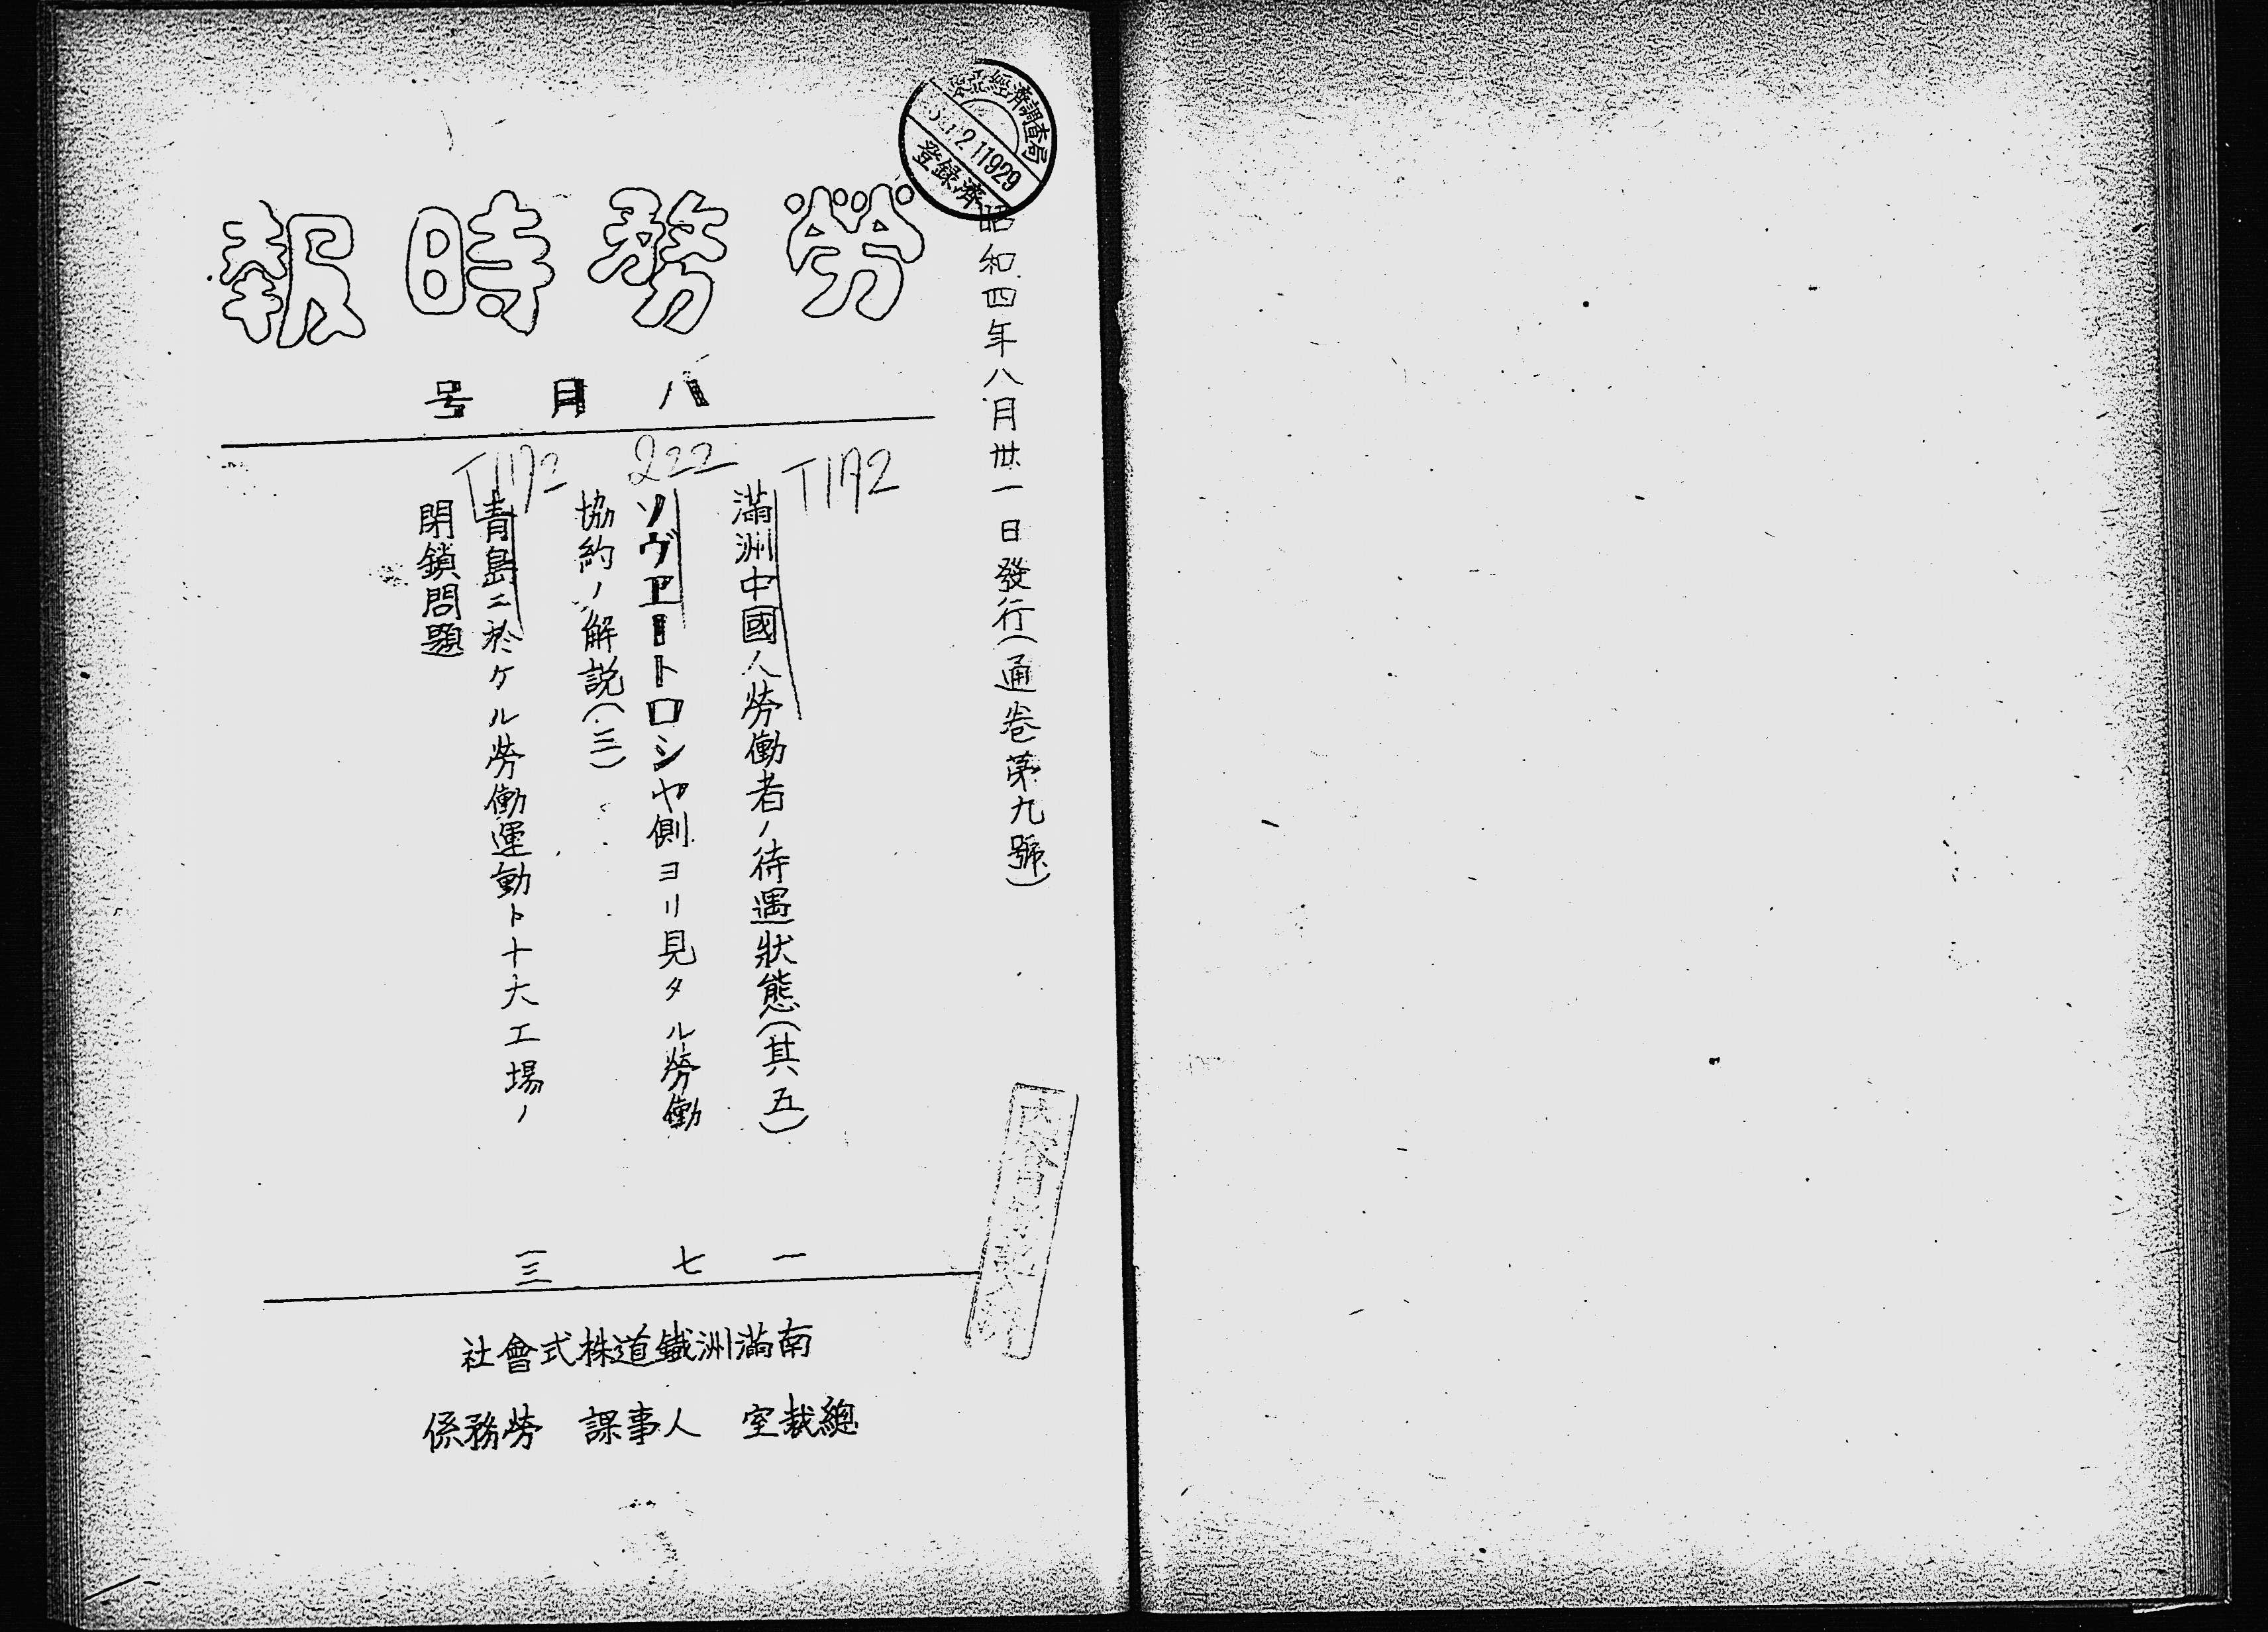 昭和四年八月卅一日發行(通卷第九號)
經濟調査局
登録濟
勞務時報
八月号
T1192
222
滿洲中國人勞働者ノ待遇狀態(其五)
一
ソヴエートロシヤ側ヨリ見タル勞働
協約ノ解説(三)
七
青島ニ於ケル勞働運動ト十大工場ノ
閉鎖問題
一三
南滿洲鐵道株式會社
總裁室 人事課 勞務係